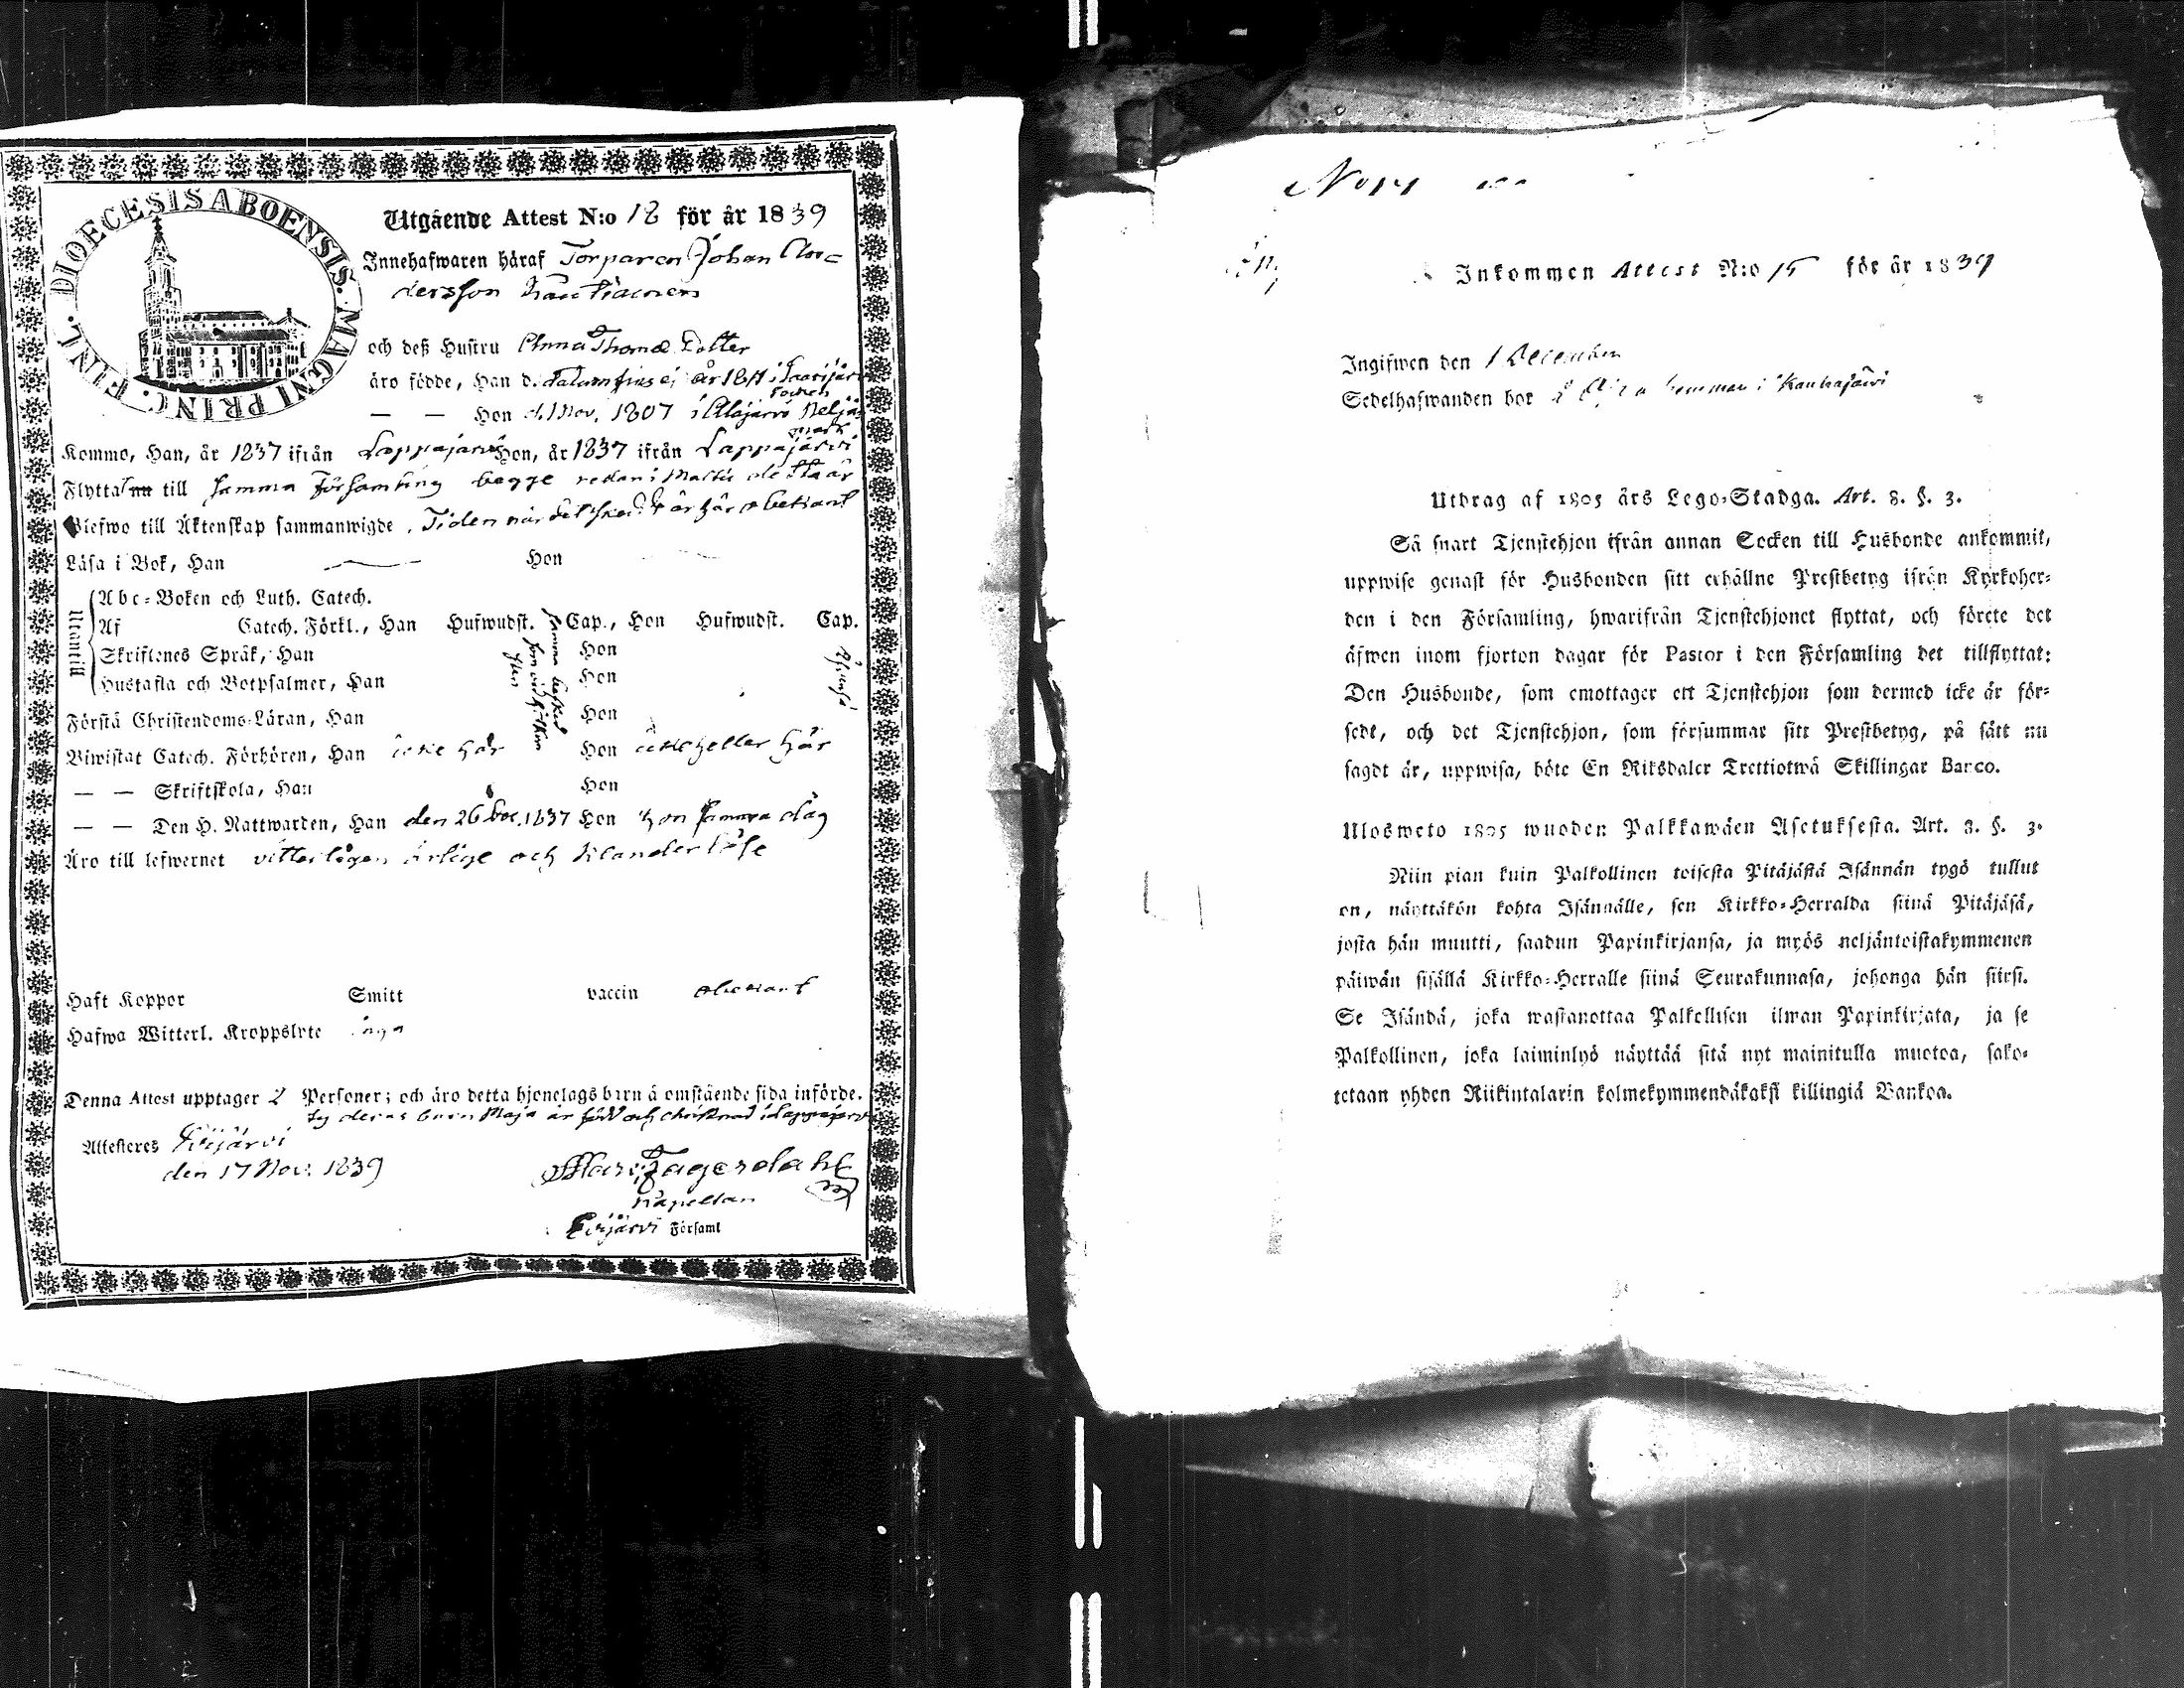 DIOECESIS ABOENSIS. MAGNI PRINC. FINL.
Utgående Attest N:o 18 för år 1839
Innehafwaren häraf Torparen Johan An=
dersson
och deß Hustru Anna Thomæ Dotter
äro födde, Han d. datum ej år 1811 i Saarijärvi
Socken
— — Hon d. 1 Nov. 1807 i Alajärvi Neljä
mark
Kommo, Han, år 1837 ifrån Lappajärvi Hon, år 1837 ifrån Lappajärvi
Flytta till samma Församling begge redan i Martii detta år
Blefwo till Äktenskap sammanwigde. Tiden när det skedt är här obekant
Läsa i Bok, Han Hon
Utantill
Abc=Boken och Luth. Catech.
Af Catech. Förkl., Han Hufwudst. Cap., Hon Hufwudst. Cap.
Skriftenes Språk, Han Hon
Hustafla och Botpsalmer, Han Hon
Första Christendoms=Läran, Han Hon
Biwistat Catech. Förhören, Han icke här Hon icke heller här
— — Skriftskola, Han Hon
— — Den H. Nattwarden, Han den 26 Dec. 1837 Hon hon samma dag
Äro till lefwernet vitterligen ärlige och
Haft Koppor Smitt vaccin obekant
Hafwa Witterl. Kroppslyte inga
Denna Attest upptager 2 Personer; och äro detta hjonelags barn å omstående sida införde.
ty deras barn Maja är född och christnad i Lappajärvi
Attesteras Evijärvi
den 17 Nov. 1839
Fagerdahl
Kapellan
Evijärvi Församl
Inkommen Attest N:o 15 för år 1839
Ingifwen den 1 December
Sedelhafwanden bor hemman i Kauhajärvi
Utdrag af 1805 års Lego=Stadga. Art. 8. §. 3.
Så snart Tjenstehjon ifrån annan Socken till Husbonde ankommit,
uppwise genast för Husbonden sitt erhållne Prestbetyg ifrån Kyrkoher=
den i den Församling, hwarifrån Tjenstehjonet flyttat, och förete det
äfwen inom fjorton dagar för Pastor i den Församling det tillflyttat:
Den Husbonde, som emottager ett Tjenstehjon som dermed icke är för=
sedt, och det Tjenstehjon, som försummar sitt Prestbetyg, på sätt nu
sagdt är, uppwisa, böte En Riksdaler Trettiotwå Skillingar Banco.
Ulosweto 1805 wuoden Palkkawäen Asetuksesta. Art. 8. §. 3.
Niin pian kuin Palkollinen toisesta Pitäjästä Isännän tygö tullut
on, näyttäkön kohta Isännälle, sen Kirkko=Herralda siinä Pitäjäsä,
josta hän muutti, saadun Papinkirjansa, ja myös neljäntoistakymmenen
päiwän sisällä Kirkko=Herralle siinä Seurakunnasa, johonga hän siirsi.
Se Isändä, joka wastanottaa Palkollisen ilman Papinkirjata, ja se
Palkollinen, joka laiminlyö näyttää sitä nyt mainitulla muotoa, sako=
tetaan yhden Riikintalarin kolmekymmendäkaksi killingiä Bankoa.